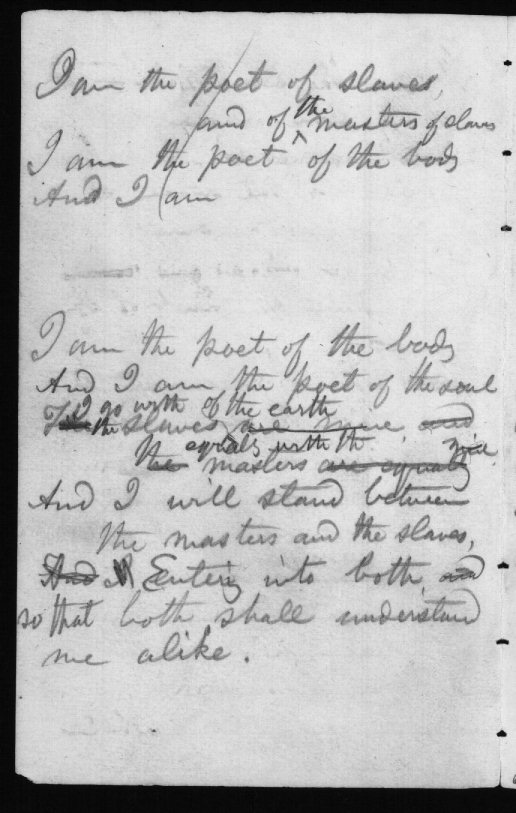 I am the poet of slaves,
and of the masters of slaves
I am the poet of the body
And I am
I am the poet of the body
And I am the poet of the soul
I go with the slaves of the earth are mine, and
The equally with the masters are equally
And I will stand between
the masters and the slaves,
And I Entering into both and
so that both shall understand
me alike.